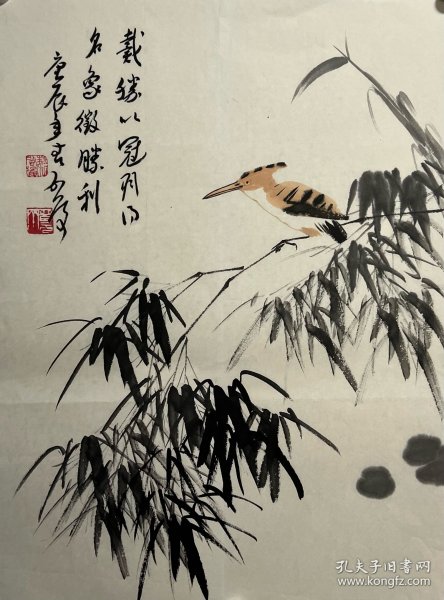 戴勝以冠羽得
名象徵勝利
庚辰年春
孔夫子旧书网
www.kongfz.com